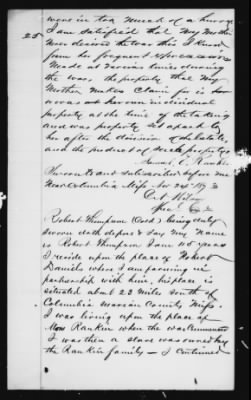 were in too much of a hurry
25 I am satisfied that My Mother
never desired the war this I know
from her frequent expressions
Made at various times during
the war, the property that My
Mother makes Claim for is her
own was at her own individual
property at the time of the taking
and was property set apart to
her after the division of the estate
and the product of such property
Samuel C. Rankin
Sworn to and subscribed before me
Near Columbia Miss Nov 24th 187
Robert Thompson (Cold) being duly
Sworn doth depose & Say My Name
is Robert Thompson I am 45 years
I reside upon the place of Robert
Daniels where I am farming in
partnership with him, his place is
situated about 23 miles South of
Columbia Marion County Miss.
I was living upon the place of
Mrs Rankin when the war Commenced
I was then a slave was owned by
the Rankin family — I continued